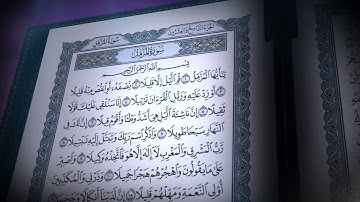 الجزء التاسع والعشرون سورة المزمل
سورة المزمل
بسم الله الرحمن الرحيم
يَٰٓأَيُّهَا ٱلْمُزَّمِّلُ ١ قُمِ ٱلَّيْلَ إِلَّا قَلِيلًا ٢ نِّصْفَهُۥٓ أَوِ ٱنقُصْ مِنْهُ قَلِيلًا ٣
أَوْ زِدْ عَلَيْهِ وَرَتِّلِ ٱلْقُرْءَانَ تَرْتِيلًا ٤ إِنَّا سَنُلْقِى عَلَيْكَ قَوْلًا
ثَقِيلًا ٥ إِنَّ نَاشِئَةَ ٱلَّيْلِ هِىَ أَشَدُّ وَطْـًٔا وَأَقْوَمُ قِيلًا ٦ إِنَّ لَكَ فِى
ٱلنَّهَارِ سَبْحًا طَوِيلًا ٧ وَٱذْكُرِ ٱسْمَ رَبِّكَ وَتَبَتَّلْ إِلَيْهِ تَبْتِيلًا ٨
رَّبُّ ٱلْمَشْرِقِ وَٱلْمَغْرِبِ لَآ إِلَٰهَ إِلَّا هُوَ فَٱتَّخِذْهُ وَكِيلًا ٩ وَٱصْبِرْ
عَلَىٰ مَا يَقُولُونَ وَٱهْجُرْهُمْ هَجْرًا جَمِيلًا ١٠ وَذَرْنِى وَٱلْمُكَذِّبِينَ
أُو۟لِى ٱلنَّعْمَةِ وَمَهِّلْهُمْ قَلِيلًا ١١ إِنَّ لَدَيْنَآ أَنكَالًا